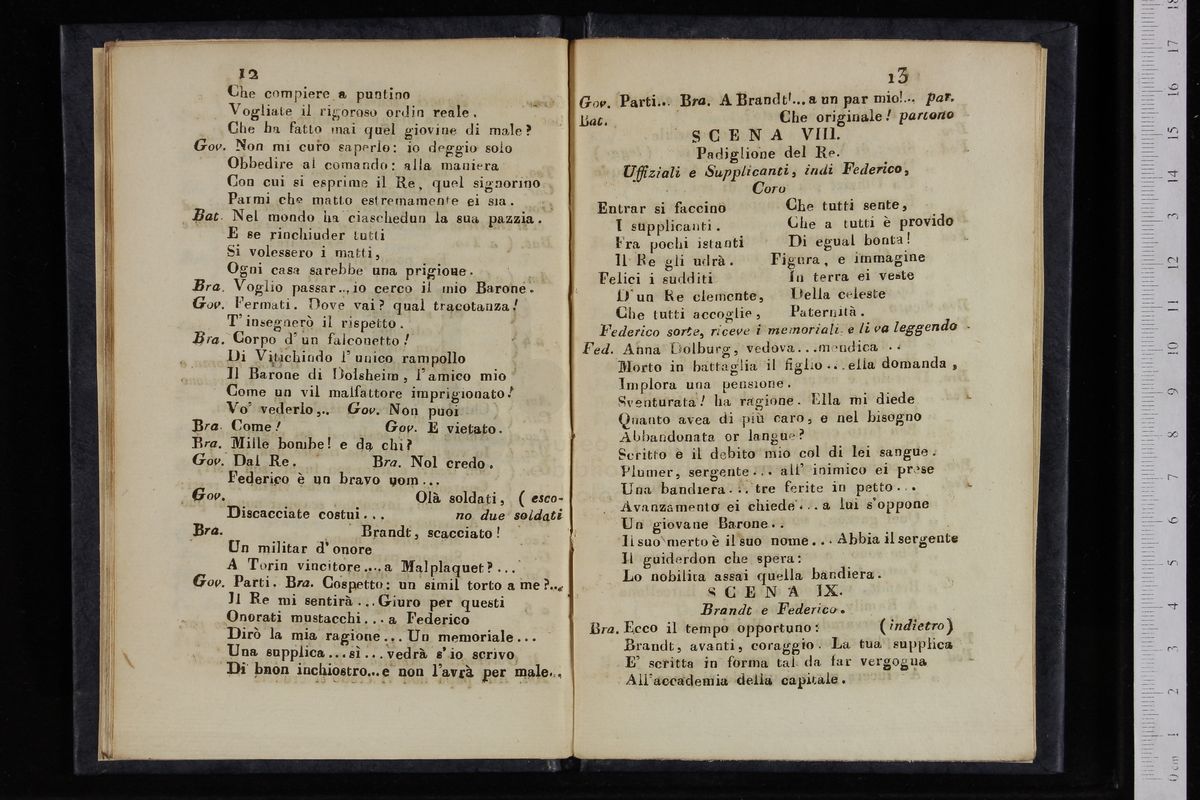 12
Che compiere a puntino
Vogliate il rigoroso ordin reale.
Che ha fatto mai quel giovine di male?
Gov. Non mi curo saperlo: io deggio solo
Obbedire al comando: alla maniera
Con cui si esprime il Re, quel signorino
Parmi che matto estremamente ei sia.
Bat. Nel mondo ha ciaschedun la sua pazzia.
E se rinchiuder tutti
Si volessero i matti,
Ogni casa sarebbe una prigione.
Bra. Voglio passar... io cerco il mio Barone.
Gov. Fermati. Dove vai? qual tracotanza!
T' insegnerò il rispetto.
Bra. Corpo d' un falconetto!
Di Vitichindo l' unico rampollo
Il Barone di Dolsheim, l' amico mio
Come un vil malfattore imprigionato!
Vo' vederlo,.. Gov. Non puoi
Bra. Come! Gov. E vietato.
Bra. Mille bombe! e da chi?
Gov. Dal Re. Bra. Nol credo.
Federico è un bravo uom...
Gov. Olà soldati, ( esco-
Discacciate costui... no due soldati
Bra. Brandt, scacciato!
Un militar d' onore
A Torin vincitore.... a Malplaquet?...
Gov. Parti. Bra. Cospetto: un simil torto a me?...
Il Re mi sentirà... Giuro per questi
Onorati mustacchi... a Federico
Dirò la mia ragione... Un memoriale...
Una supplica... sì... vedrà s' io scrivo
Di bnon inchiostro... e non l'avrà per male...
13
Gov. Parti... Bra. A Brandt!... a un par mio!... par.
Bat. Che originale! partono
SCENA VIII.
Padiglione del Re.
Uffiziali e Supplicanti, indi Federico,
Coro
Entrar si faccino
I supplicanti.
Fra pochi istanti
Il Re gli udrà.
Felici i sudditi
D' un Re clemente,
Che tutti accoglie,
Che tutti sente,
Che a tutti è provido
Di egual bontà!
Figura, e immagine
In terra ei veste
Della celeste
Paternità.
Federico sorte, riceve i memoriali e li va leggendo
Fed. Anna Dolburg, vedova... mendica..
Morto in battaglia il figlio... ella domanda,
Implora una pensione.
Sventurata! ha ragione. Ella mi diede
Quanto avea di più caro, e nel bisogno
Abbandonata or langue?
Scritto è il debito mio col di lei sangue.
Plumer, sergente... all' inimico ei prese
Una bandiera... tre ferite in petto...
Avanzamento ei chiede... a lui s'oppone
Un giovane Barone..
Il suo merto è il suo nome... Abbia il sergente
Il guiderdon che spera:
Lo nobilita assai quella bandiera.
SCENA IX.
Brandt e Federico.
Bra. Ecco il tempo opportuno: (indietro)
Brandt, avanti, coraggio. La tua supplica
E' scritta in forma tal da far vergogna
All'accademia della capitale.
0 cm 1 2 3 4 5 6 7 8 9 10 11 12 13 14 15 16 17 18